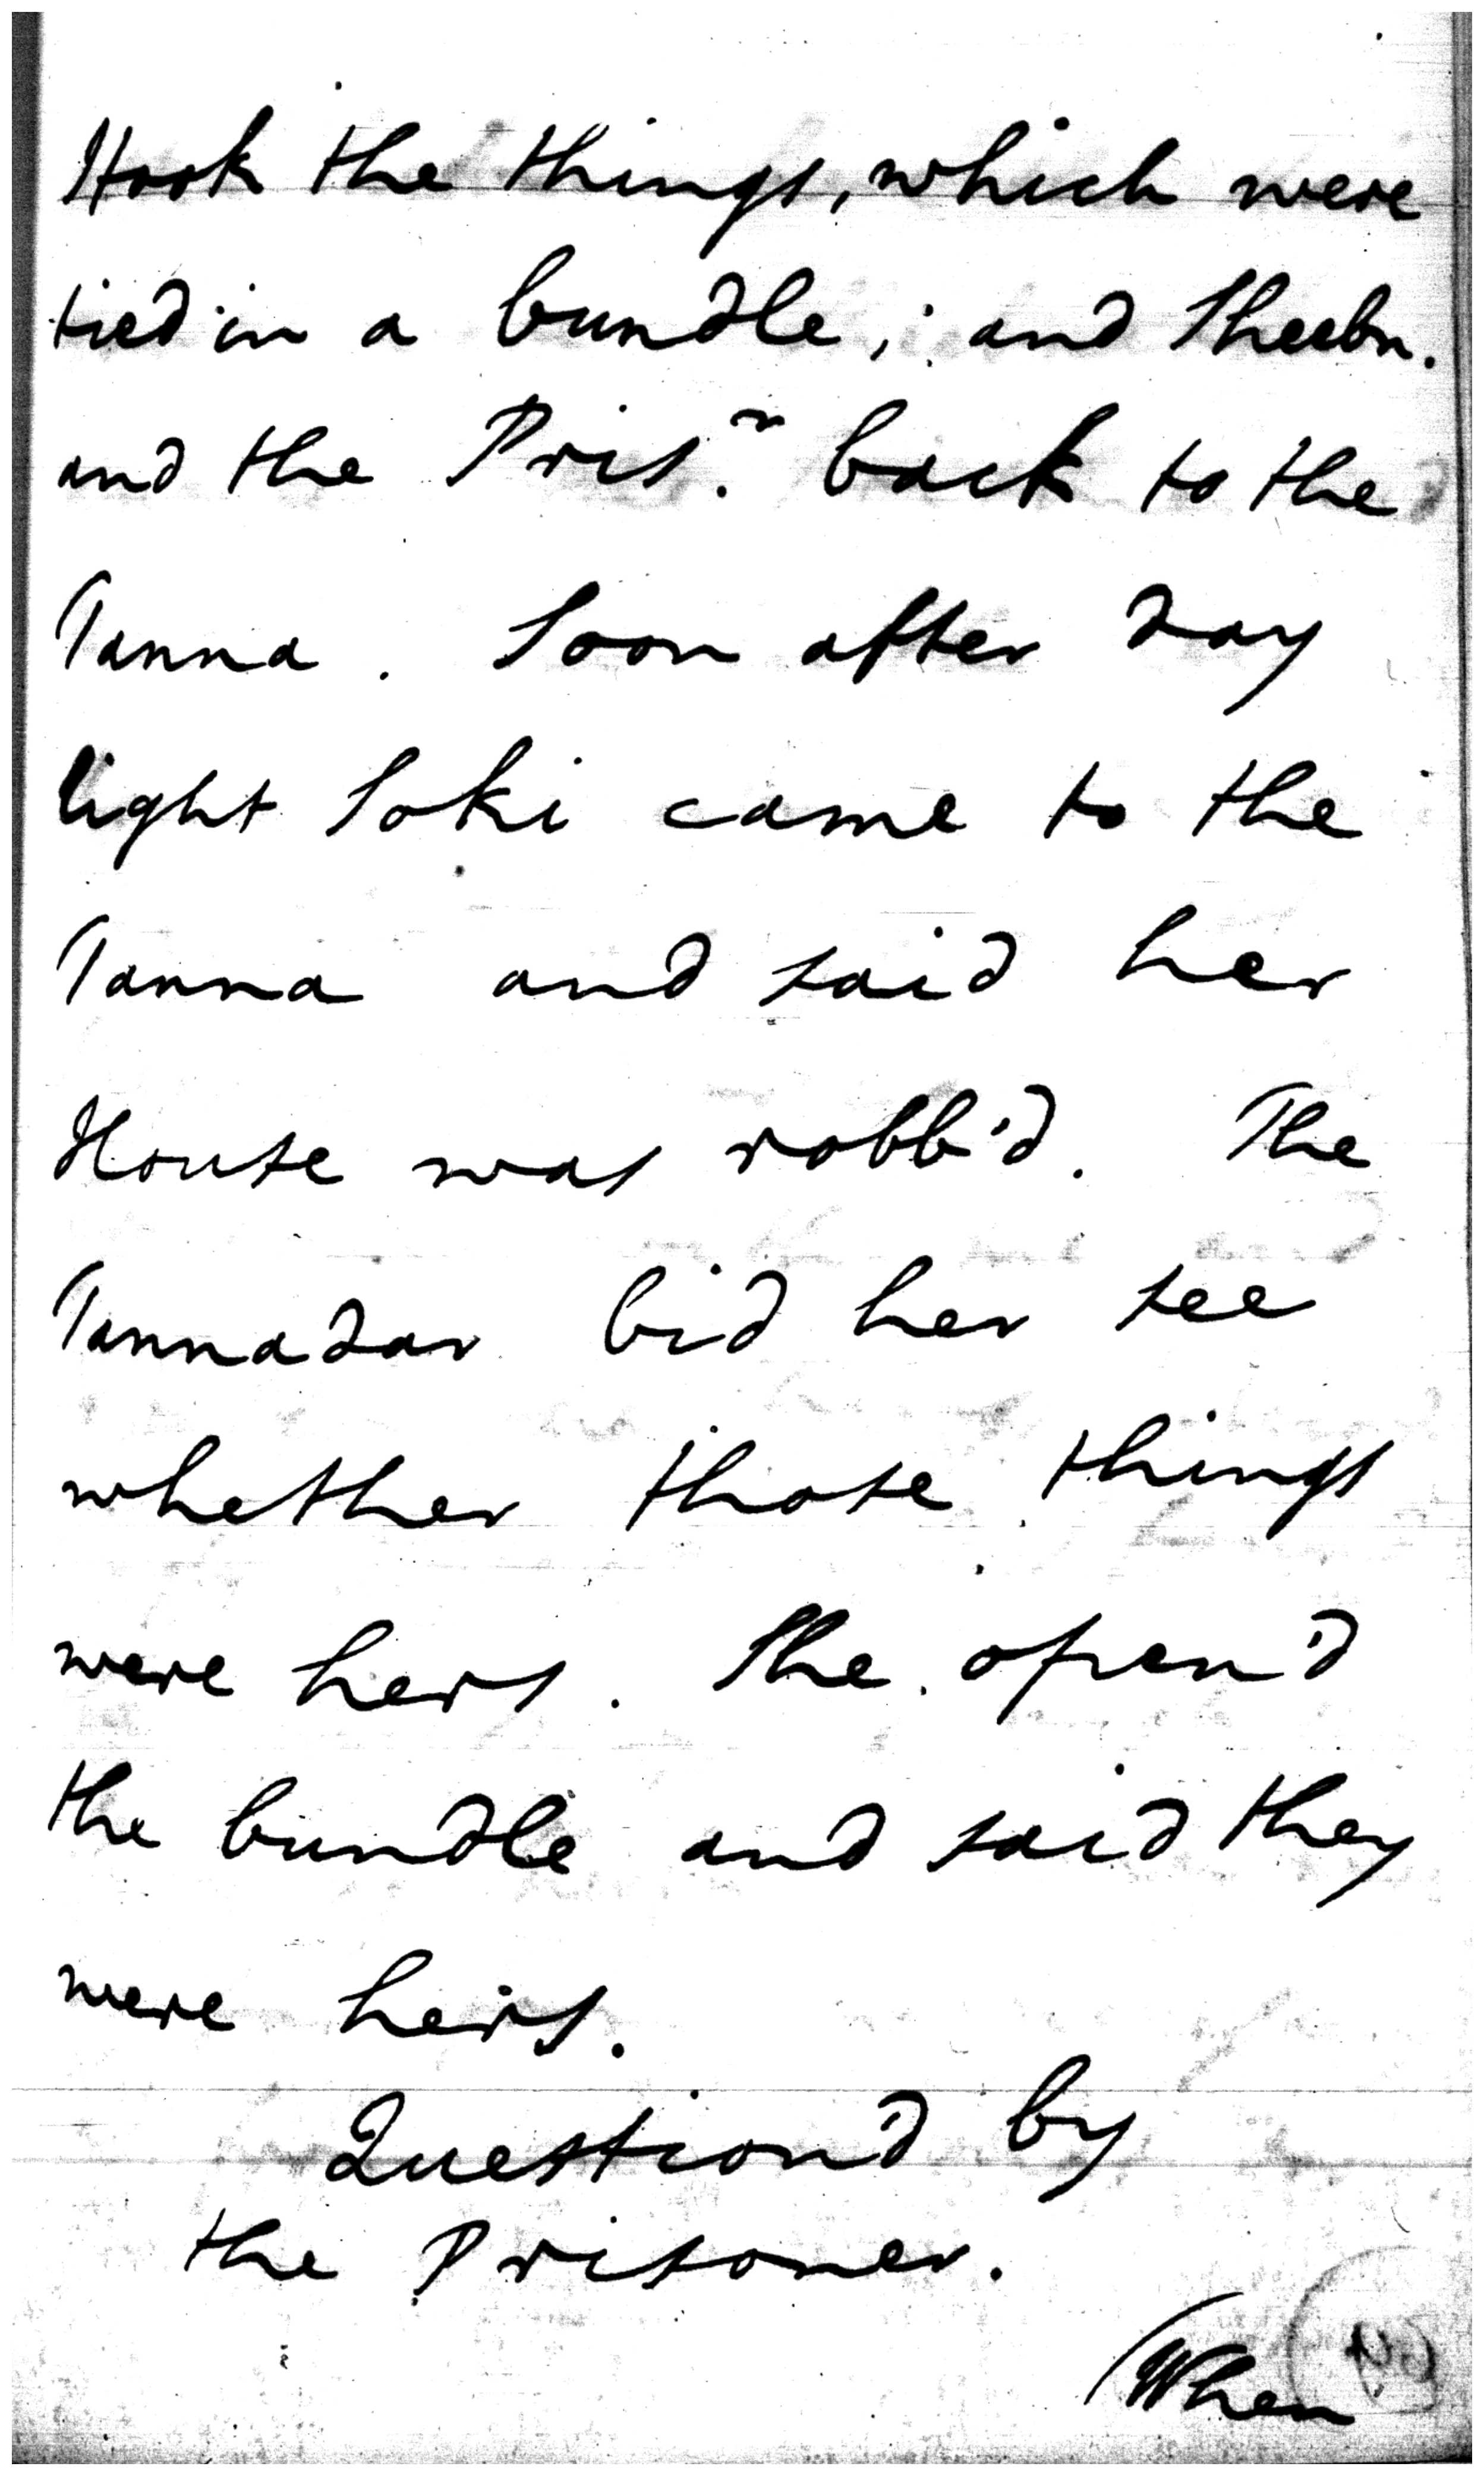 I took the things, which were
tied in a bundle, and Sheebn.
and the Pris.r back to the
Tanna. Soon after day
light Soki came to the
Tanna and said her
House was robb'd. The
Tannadar bid her see
whether those things
were hers. She open'd
the bundle and said they
were hers.
Question'd by
the Prisoner.
(When